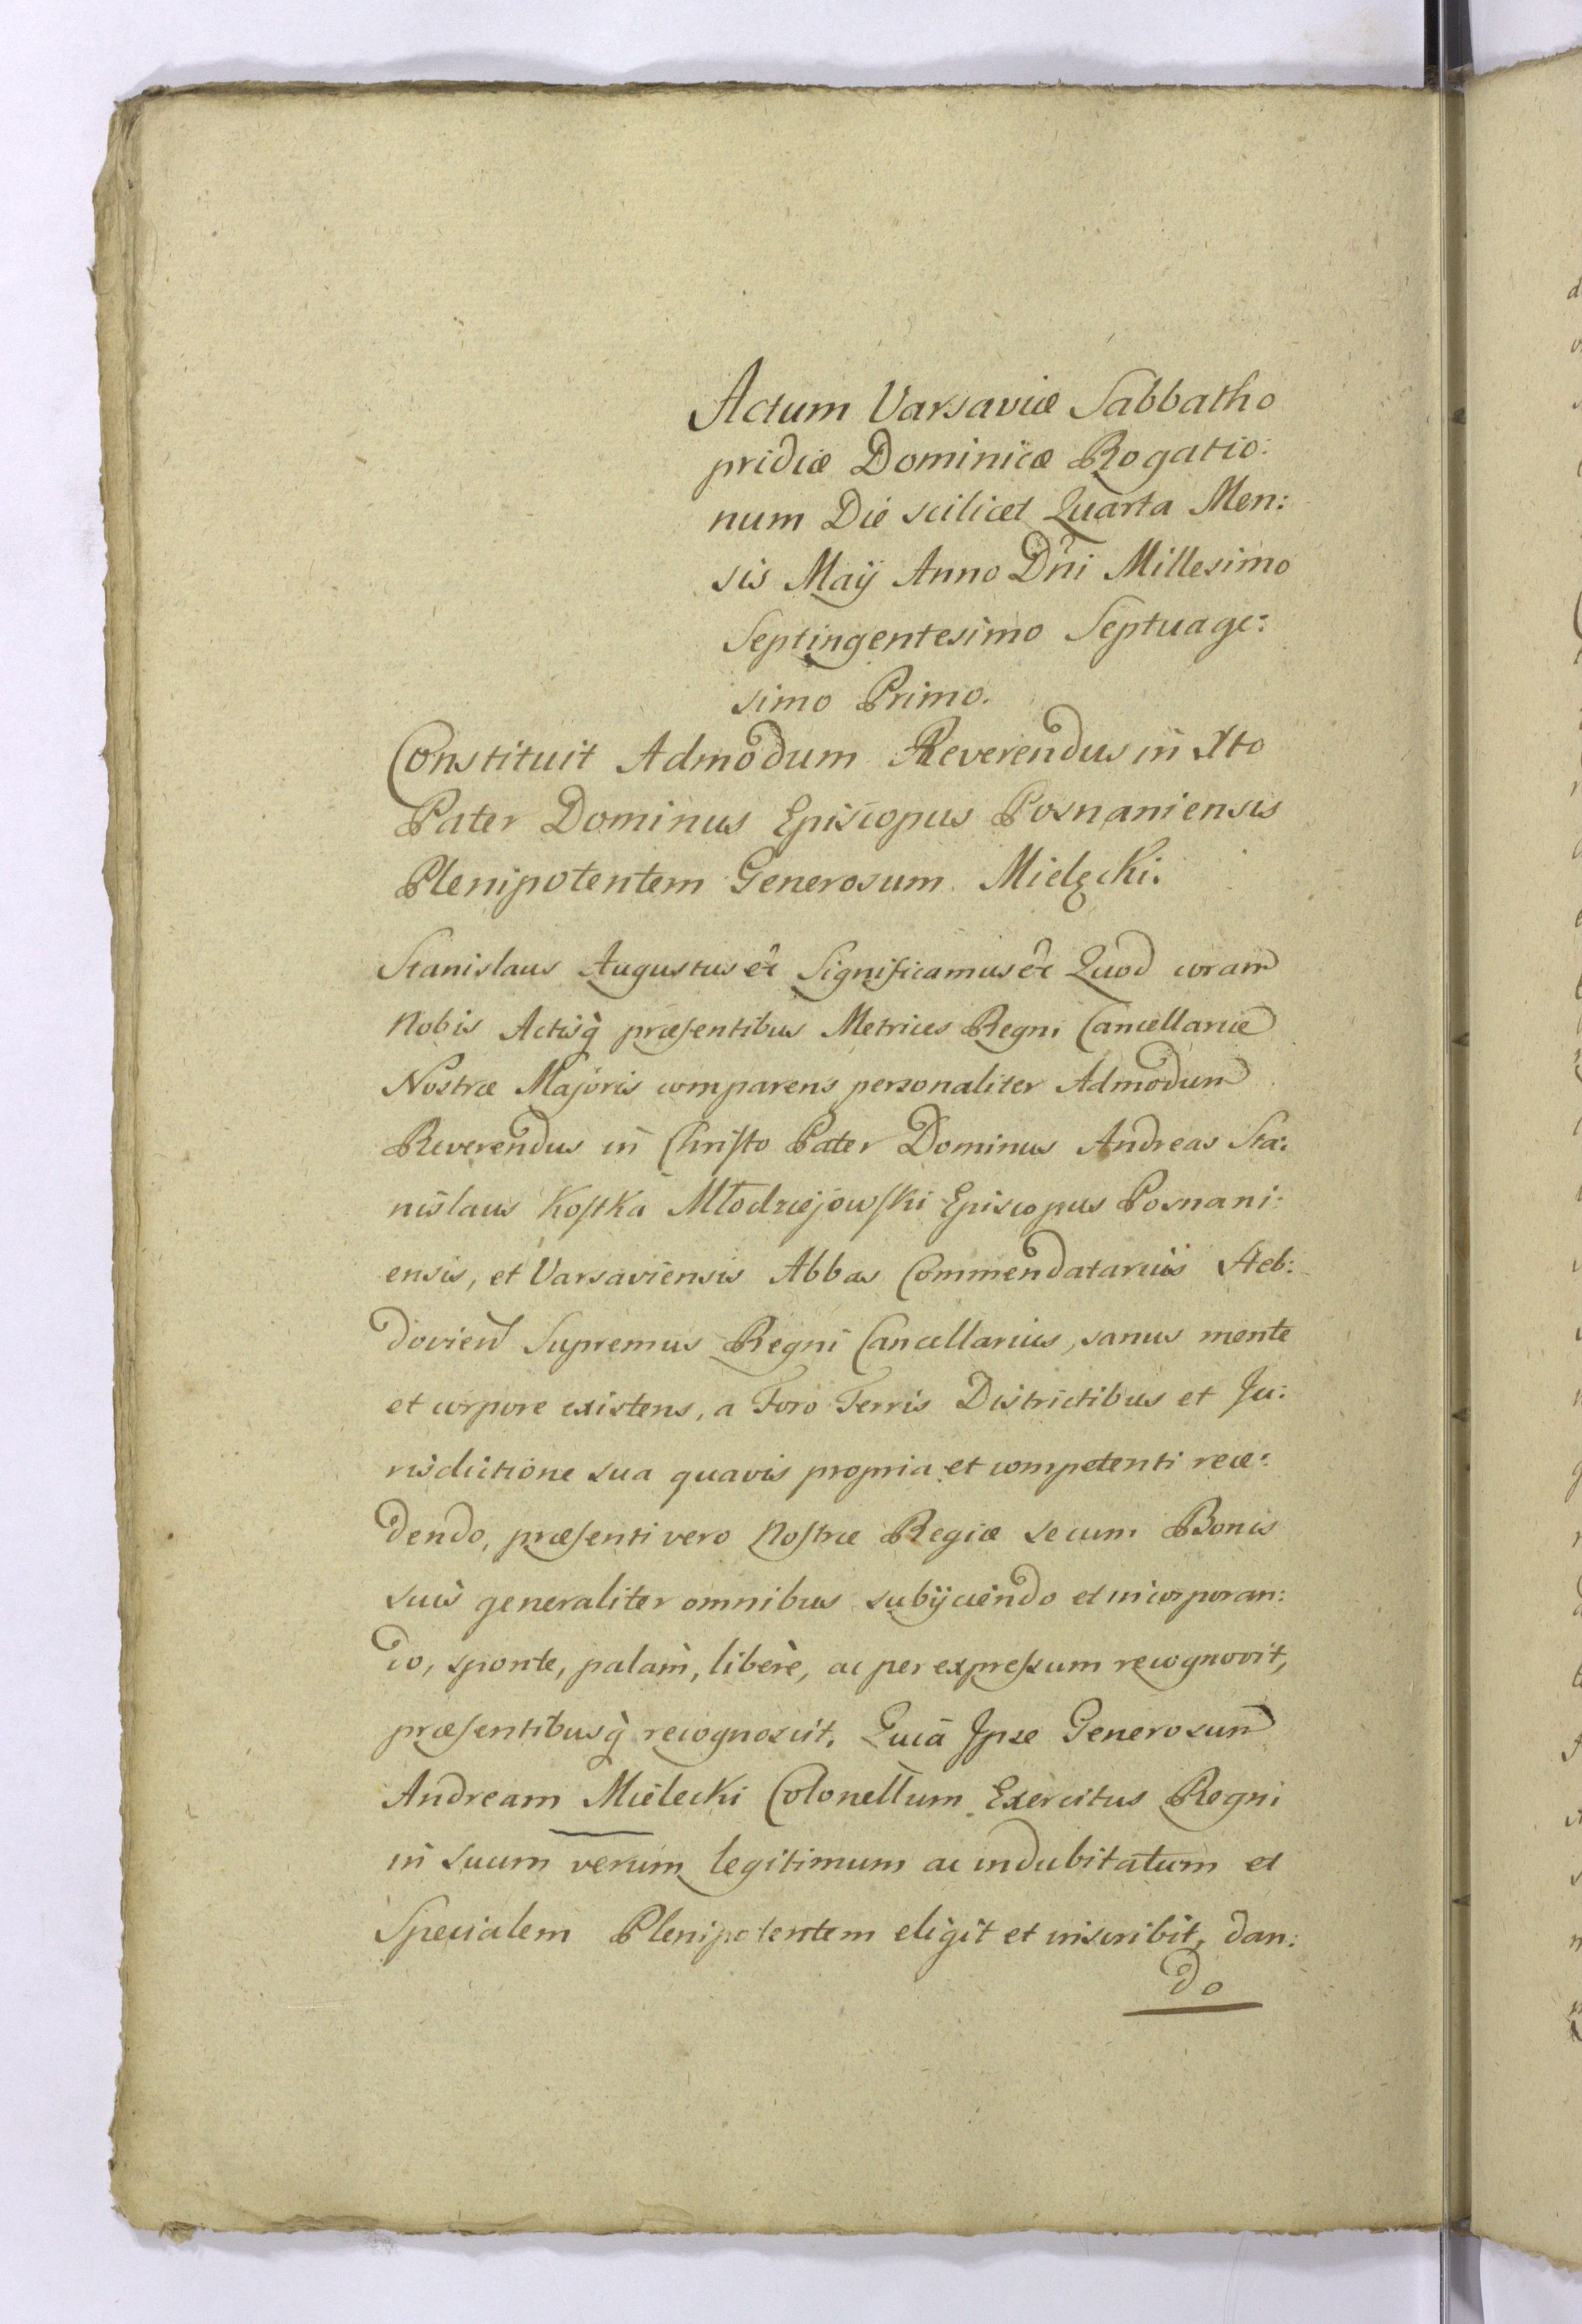 Actum Varsaviæ Sabbatho
pridiæ Dominicæ Rogatio:
num Die scilicet Quarta Men:
sis Maÿ Anno Dni Millesimo
Septingentesimo Septuage:
simo Primo.
Constituit Admodum Reverendus in Xto
Pater Dominus Episcopus Posnaniensis
Plenipotentem Generosum Mielęcki.
Stanislaus Augustus etc Significamus etc Quod coram
Nobis Actisq̀ præsentibus Metrices Regni Cancellariæ
Nostræ Majoris comparens personaliter Admodum
Reverendus in Christo Pater Dominus Andreas Sta:
nislaus Kostka Młodziejowski Episcopus Posnani:
ensis, et Varsaviensis Abbas Commendatarius Heb:
dovien Supremus Regni Cancellarius, sanus mente
et corpore existens, a Foro Terris Districtibus et Ju:
risdictione sua quavis propria et competenti rece:
dendo, præsenti vero Nostræ Regiæ se cum Bonis
suis generaliter omnibus subÿciendo et incorporan:
do, sponte, palam, liberè, ac per expressum recognovit,
præsentibusq̀ recognoscit, Quia Ipse Generosum
Andream Mielecki Colonellum Exercitus Regni
in suum verum legitimum ac indubitatum et
Specialem Plenipotentem eligit et inscribit, dan:
do